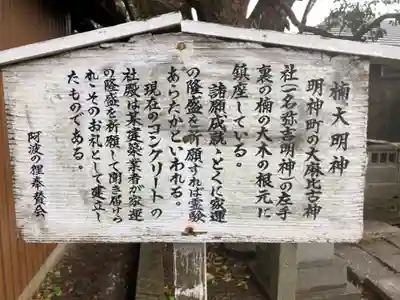 楠大明神
明神町の大麻比古神
社(一名弥吉明神)の左手
裏の楠の大木の根元に
鎮座している。
諸願成就、とくに家運
の隆盛を祈願すれば霊験
あらたかといわれる。
現在のコンクリートの
社殿は某建築業者が家運
の隆盛を祈願して聞き届けら
れこそのお礼として建立し
たものである。
阿波の狸奉賛会